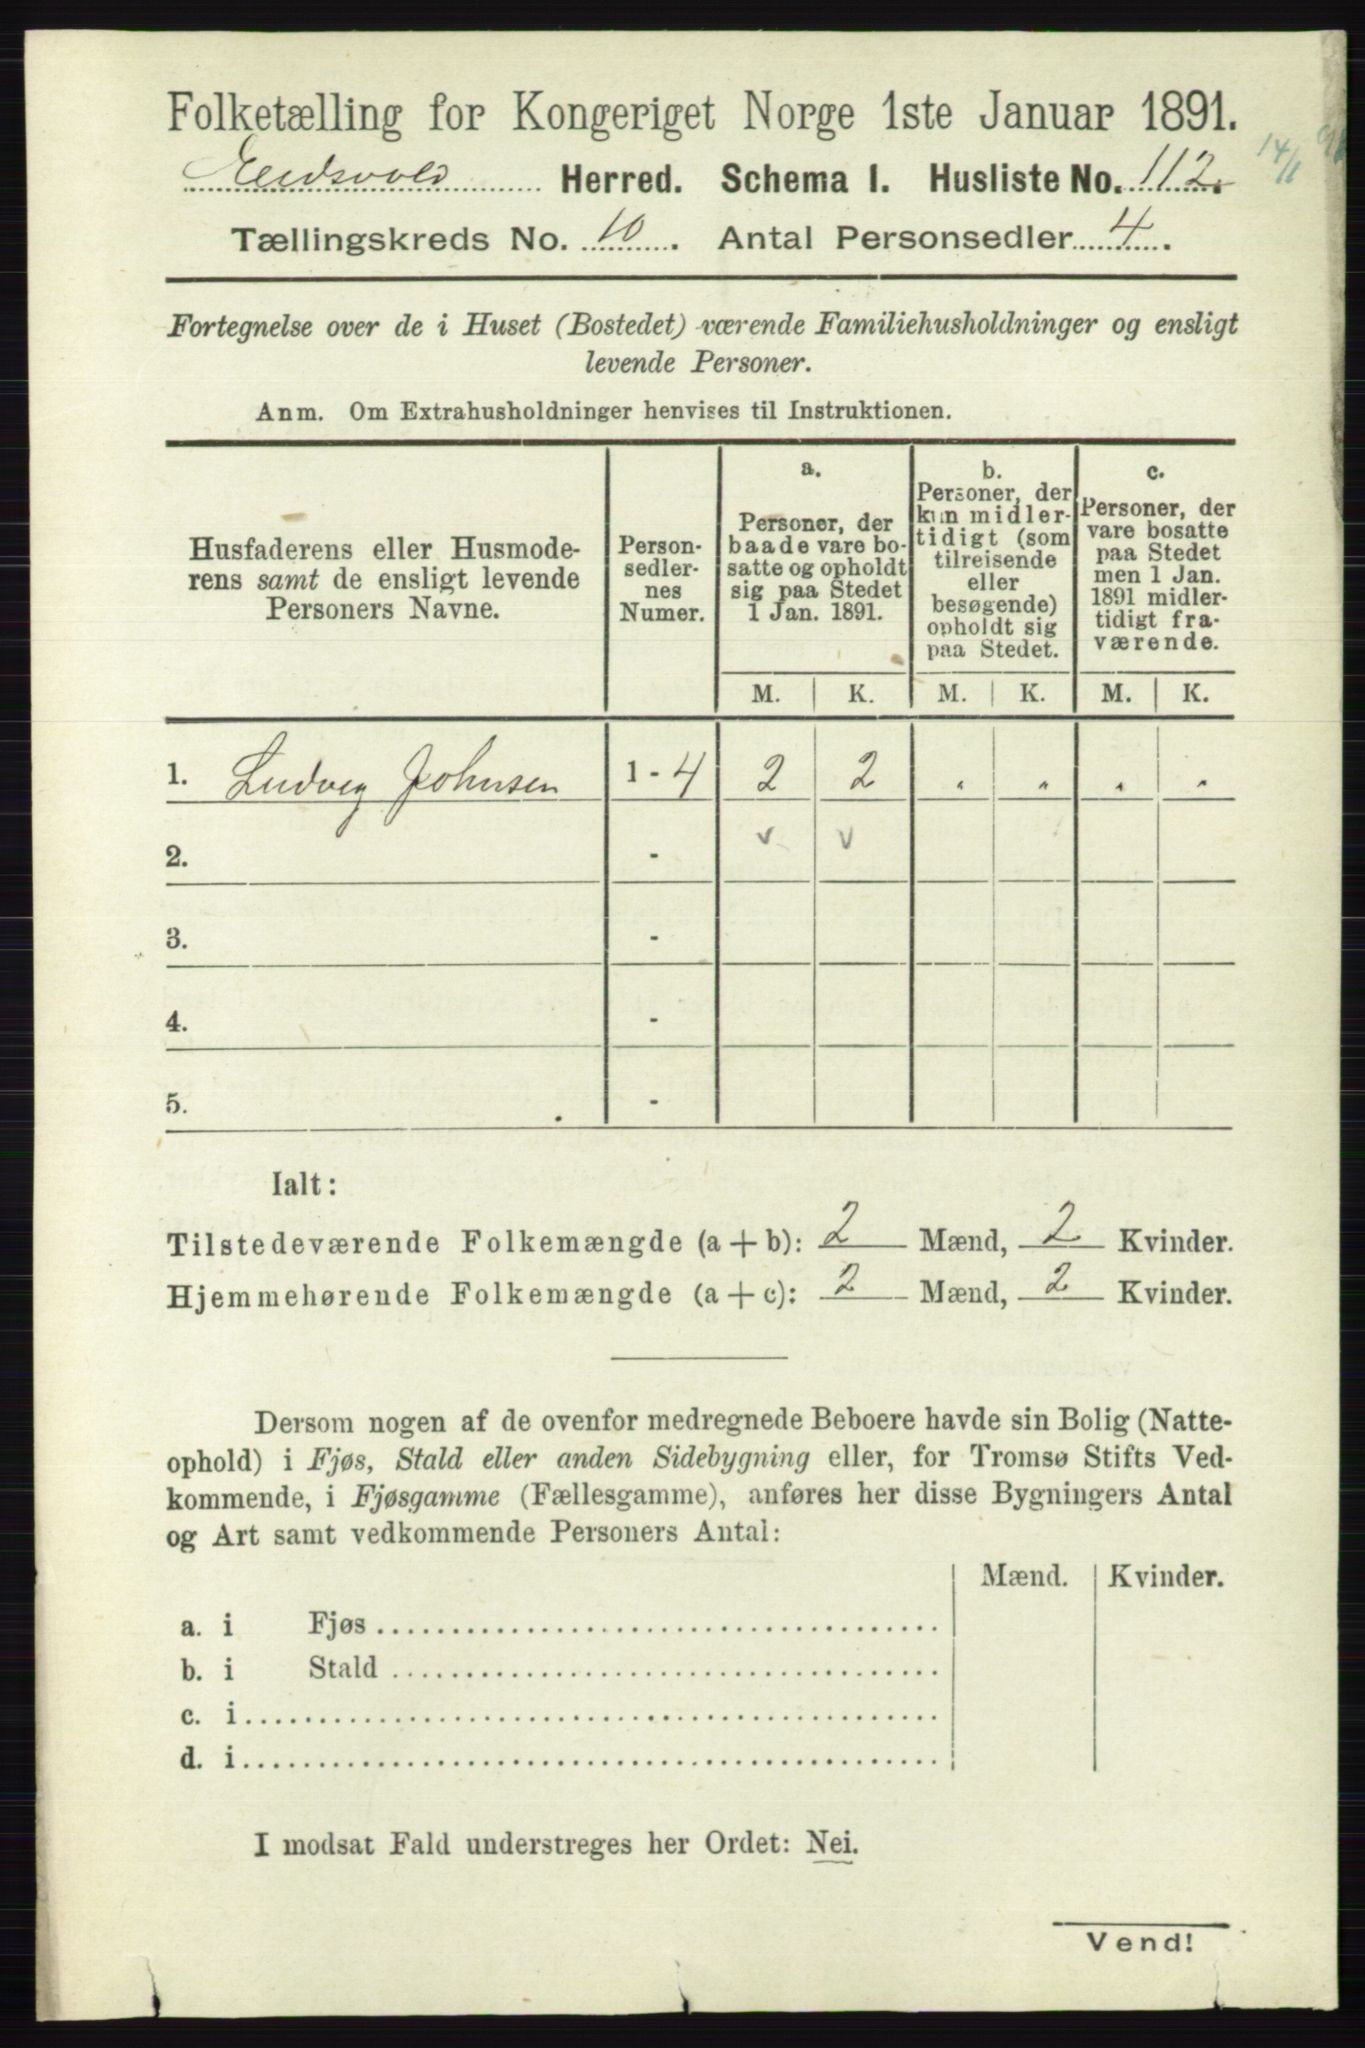 Folketælling for Kongeriget Norge 1ste Januar 1891.
Eidsvold Herred. Schema I. Husliste No. 112.
14/11
Tællingskreds No. 10. Antal Personsedler 4.
Fortegnelse over de i Huset (Bostedet) værende Familiehusholdninger og ensligt
levende Personer.
Anm. Om Extrahusholdninger henvises til Instruktionen.
Husfaderens eller Husmode-
rens samt de ensligt levende
Personers Navne.
Person-
sedler-
nes
Numer.
a.
Personer, der
baade vare bo-
satte og opholdt
sig paa Stedet
1 Jan. 1891.
b.
Personer, der
kun midler-
tidigt (som
tilreisende
eller
besøgende)
opholdt sig
paa Stedet.
c.
Personer, der
vare bosatte
paa Stedet
men 1 Jan.
1891 midler-
tidigt fra-
værende.
M. K. M. K. M. K.
1. Ludvig Johnsen 1 - 4 2 2 " " " "
2. - v v
3. -
4. -
5. -
Ialt:
Tilstedeværende Folkemængde (a + b): 2 Mænd, 2 Kvinder.
Hjemmehørende Folkemængde (a + c): 2 Mænd, 2 Kvinder.
Dersom nogen af de ovenfor medregnede Beboere havde sin Bolig (Natte-
ophold) i Fjøs, Stald eller anden Sidebygning eller, for Tromsø Stifts Ved-
kommende, i Fjøsgamme (Fællesgamme), anføres her disse Bygningers Antal
og Art samt vedkommende Personers Antal:
Mænd. Kvinder.
a. i Fjøs
b. i Stald
c. i
d. i
I modsat Fald understreges her Ordet: Nei.
Vend!